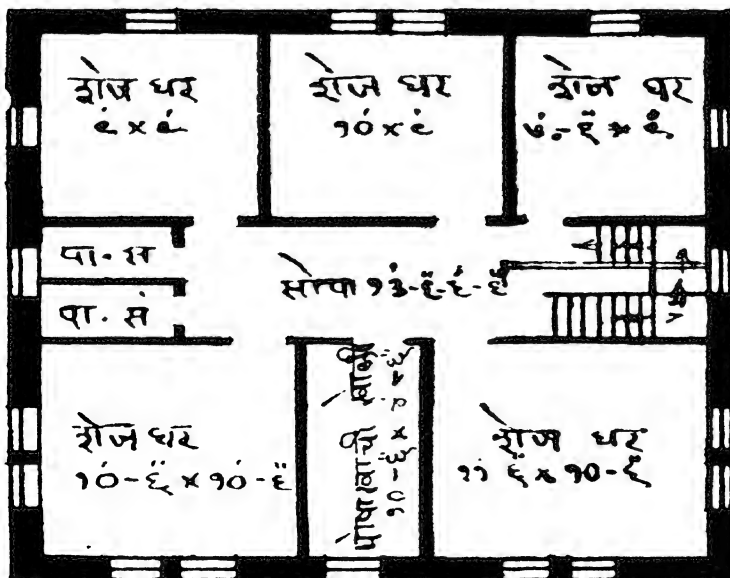 शेज घर
९' × ९'
शेज घर
१०' × ९'
शेज घर
× ९'
पा. स
सोपा १३'-६"-६'-६"
पा. सं
शेज घर
१०'-६" × १०'-६"
पोषाखाची खोली
१०-६" ×
शेज घर
११' ६" × १०-६"